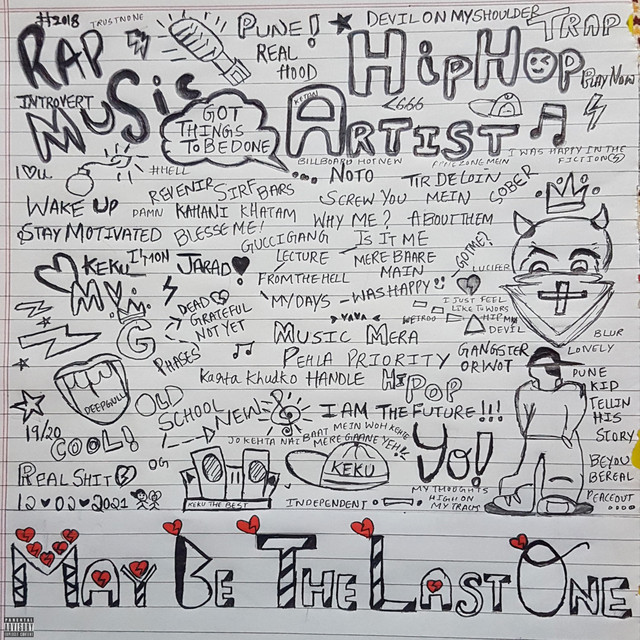 #2018
TRUSTNONE
PUNE!
DEVIL ON MY SHOULDER
TRAP
RAP
REAL
HOOD
HIPHOP
PLAY NOW
INTROVERT
MUSIC
GOT
THINGS
TO BE DONE
<666
ARTIST
I WAS HAPPY IN THE
FICTION(S)
I ♡ U
#HELL
BILLBOARD HOT NEW
NOTO
TIR DE LOIN
SOBER
REVENIR
SIRF BARS
SCREW YOU
MEIN
WAKE UP
DAMN
KAHANI KHATAM
WHY ME?
ABOUT THEM
STAY MOTIVATED
BLESSE ME!
GUCCI GANG
IS IT ME
GOT ME?
KEKU
I'M ON
JARAD
LECTURE
MERE BAARE
MAIN
LUCIFER
MY
FROM THE HELL
MY DAYS
WAS HAPPY
G
DEAD
GRATEFUL
NOT YET
PHASES
I JUST FEEL
LIKE TO WORS
HIPM
DEVIL
MUSIC MERA
BLUR
LONELY
PEHLA PRIORITY
GANGSTER
OR WOT
KARTA KHUDKO HANDLE
HIPOP
DEEPGULL
OLD
SCHOOL
NEW
I AM THE FUTURE!!!
PUNE
KID
TELLIN
HIS
STORY
19/20
COOL!
JO KEHTA NAI BAAT MEIN WOH KEHTE
MERE GAANE YEH
YO!
REAL SHIT
OG
KEKU
BE YOU
BE REAL
PEACEOUT....
12♥02♥2021
KEKU THE BEST
INDEPENDENT
MY THOUGHTS
HIGH ON
MY TRACK
MAY BE THE LAST ONE
PARENTAL
ADVISORY
EXPLICIT CONTENT